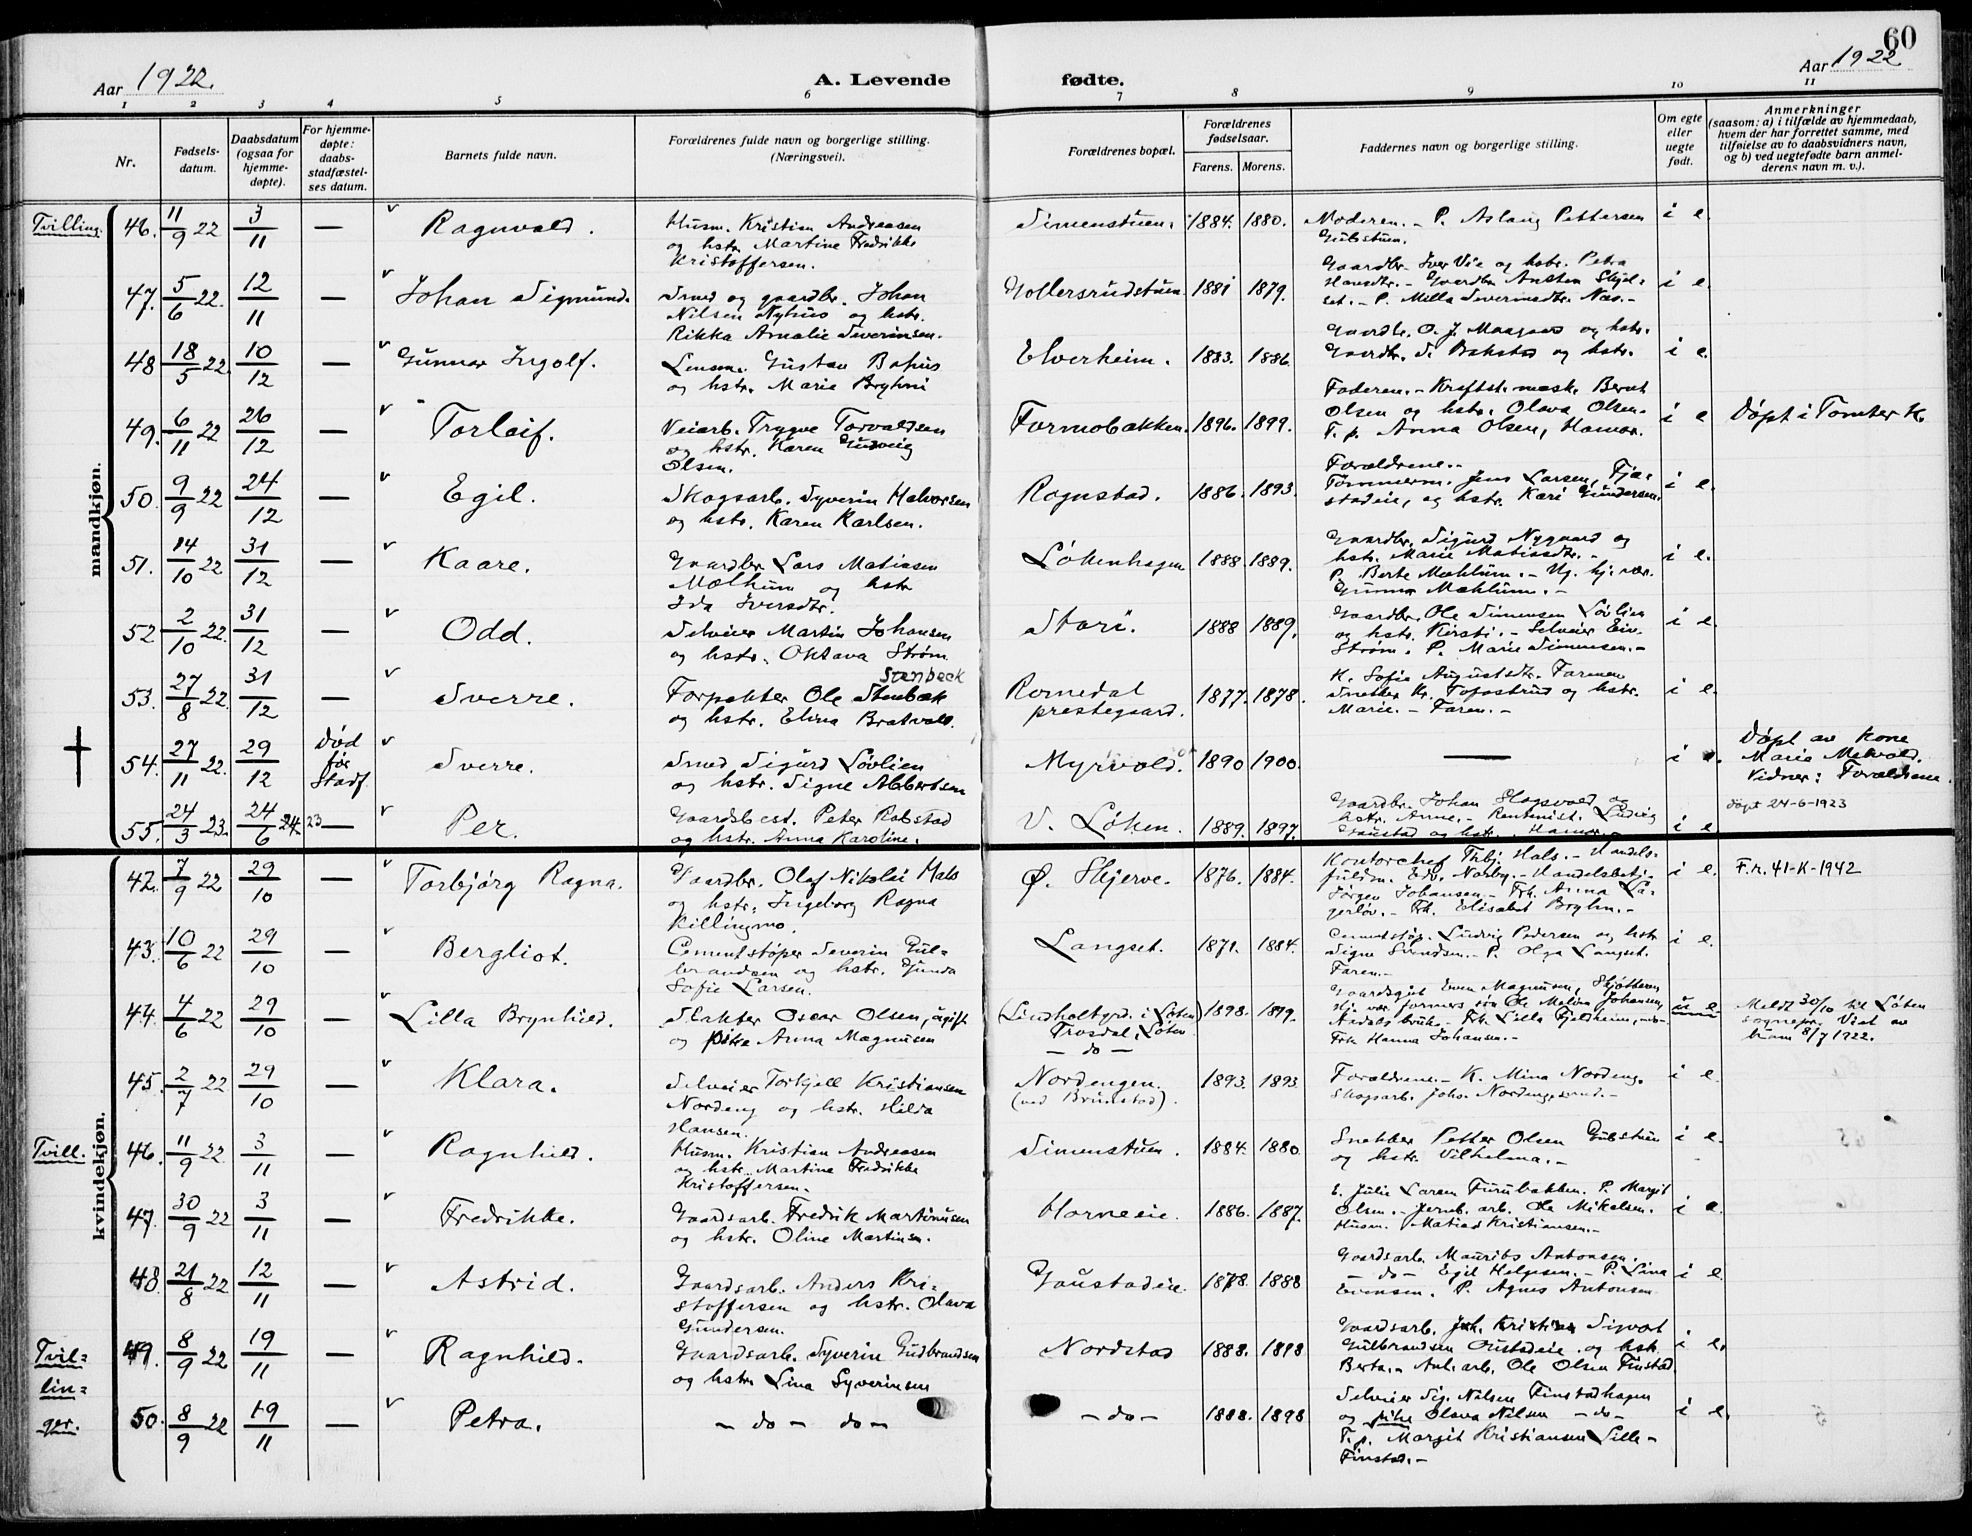 60
Aar 1922.
A. Levende
fødte.
Aar 1922
1 2 3 4 5 6 7 8 9 10 11
Nr.
Fødsels-
datum.
Daabsdatum
(ogsaa for
hjemme-
døpte).
For hjemme-
døpte:
daabs-
stadfæstel-
ses datum.
Barnets fulde navn.
Forældrenes fulde navn og borgerlige stilling.
(Næringsvei).
Forældrenes bopæl.
Forældrenes
fødselsaar.
Farens. Morens.
Faddernes navn og borgerlige stilling.
Om egte
eller
uegte
født.
Anmerkninger
(saasom: a) i tilfælde av hjemmedaab,
hvem der har forrettet samme, med
tilføielse av to daabsvidners navn,
og b) ved uegtefødte barn anmel-
derens navn m. v.).
mandkjøn.
Tvilling. 46. 11/9 22 3/11 — Ragnvald. Husm. Kristian Andreasen
og hstr. Martine Fredrikke
Kristoffersen.
Simenstuen. 1884. 1880. Moderen. – P. Aslaug Pettersen
Gubstuen. i e.
47. 5/6 22. 12/11 — Johan Sigmund. Smed og gaardbr. Johan
Nilsen Nyhus og hstr.
Rikka Amalie Severinsen.
Gollersrudstuen 1881 1879. Gaardbr. Iver Vie og hstr. Petra
Hansdtr. – Gaardbr. Ansten Skjel-
set. – P. Milla Severinsdtr. Næs. – i e.
48 18/5 22. 10/12 — Gunnar Ingolf. Lensm. Gustav Bahus
og hstr. Marie Bryhni
Elverheim. 1883. 1886. Gaardbr. O. J. Maagaard og hstr.
Gaardbr. S. Bakstad og hstr. i e.
49. 6/11 22 26/12 — Torleif. Veiarb. Trygve Torvaldsen
og hstr. Karen Ludvig
Olsen.
Formobakken. 1896. 1899. Faderen. – Kraftst. mask. Bernt
Olsen og hstr. Olava Olsen.
T. p. Anna Olsen, Hamar. i e Døpt i Tomter K.
50. 9/9 22 24/12 — Egil. Skogsarb. Syverin Halvorsen
og hstr. Karen Karlsen.
Rognstad. 1886. 1893. Forældrene. –
Tømmerm. Jens Larsen, Fjæ-
stadeie, og hstr. Kari Gundersen. i e.
51. 14/10 22 31/12 — Kaare. Gaardbr Lars Matiasen
Mælhum og hstr
Ida Iversdtr.
Løkenhagen 1888. 1889. Gaardbr. Sigurd Nygaard og
hstr. Marie Matiasdtr. –
P. Berte Mæhlum. – Ug. hj. vær.
Gunnar Mæhlum. – i e.
52 2/10 22. 31/12 — Odd. Selveier Martin Johansen
og hstr. Oktava Strøm
Stori. 1888 1889. Gaardbr. Ole Simensen Løvlien
og hstr. Kirsti. – Selveier Ein.
Strøm. P. Marie Simensen. – i e.
53. 27/8 22. 31/12 — Sverre. Forpakter Ole Stenbæk
Stenbeck
og hstr. Elina Bratvold.
Romedal
prestegaard. 1877. 1878. K. Sofie Augustdtr. Farmen
Snekker Kr. Tofastrud og hstr.
Marie. – Faren. – i e.
54. 27/11 22. 29/12 Død
før
Stadf. Sverre. Smed Sigurd Løvlien
og hstr. Signe Albertsen
Myrvold. 1890 1900. — i e. Døpt av kone
Marie Melvold.
Vidner: Forældrene.
55. 24/3 23. 24/6 24. 23 — Per. Gaardsbest. Peter Robstad
og hstr. Anna Karoline.
V. Løken. 1889. 1897. Gaardbr. Johan Skogsvold og
hstr. Anne. – Rentenist. Ludvig
Gaustad og hstr. Hamar. – i e døpt 24-6-1923
kvindekjøn.
42. 7/9 22 29/10 — Torbjørg Ragna. Gaardbr. Olaf Nikolai Hals
og hstr. Ingeborg Ragna
Killingmo.
Ø. Skjerve. 1876. 1884. Kontorchef Thbj. Hals. – Handels-
fuldm. Edv. Norby. – Handelsbetj.
Jørgen Johansen – Frk. Anna La-
gerløv. – Frk. Elisabet Bryhn. – i e. F.n. 41-K-1942
43. 10/6 22 29/10 — Bergliot. Cementstøper Severin Gul-
brandsen og hstr. Gunda
Sofie Larsen.
Langset. 1871. 1884. Cementstøp. Ludvig Pedersen og hstr
Signe Svendsen. – P. Olga Langset.
Faren. – i e.
44. 4/6 22 29/10 — Lilla Brynhild. Slakter Oscar Olsen, ugift
og pike Anna Magnusen
(Lindholtspd. i Løten)
Trosdal, Løten
— do — 1898. 1899. Gaardsgut Even Magnusen, Skjøtteren
Hj. vær. formers søn Ole Melvin Johansen,
Aadalsbruk. – Frk. Lilla Fjeldheim, –
Frk Hanna Johansen. – u e Meldt 30/10 til Løten
sognepr. Viet av
ham 8/7 1922.
45. 2/7 22 29/10 — Klara. Selveier Torkjell Kristiansen
Nordeng og hstr. Hilda
Hansen.
Nordengen.
(ved Brunstad). 1893. 1893 Forældrene. – K. Mina Nordeng.
Skogsarb. Johs. Nordengsrud. – i e.
Tvill. 46. 11/9 22 3/11 — Ragnhild. Husm. Kristian Andreasen
og hstr. Martine Fredrikke
Kristoffersen.
Simenstuen. 1884. 1880. Snekker Petter Olsen Gubstuen
og hstr. Vilhelma. – i e.
47. 30/9 22 3/11 — Fredrikke. Gaardsarb. Fredrik Martinusen
og hstr. Oline Martinsen.
Horneeie. 1886. 1887. E. Julie Larsen Furubakken. P. Margit
Olsen. – Jernb. arb. Ole Mikelsen.
Husm. Matias Kristiansen. – i e.
48. 21/8 22 12/11 — Astrid. Gaardsarb. Anders Kri-
stoffersen og hstr. Olava
Gundersen.
Gaustadeie. 1878. 1888 Gaardsarb. Maurits Antonsen.
— do — Egil Helgesen. – P. Lina
Evensen. P. Agnes Antonsen i e.
Tvil-
lin-
ger.
49. 8/9 22 19/11 — Ragnhild. Gaardsarb. Syverin Gudbrandsen
og hstr. Lina Syverinsen
Nordstad 1888. 1898 Gaardsarb. Joh. Kristian Sigvart
Gulbrandsen Oustadeie og hstr.
Berta. – Anl. arb. Ole Olsen Finstad i e.
50. 8/9 22 19/11 — Petra. — do — do —
— do — 1888. 1898 Selveier Sig. Nilsen Finstadhagen
og pike Olava Nilsen — do —
T. p. Margit Kristiansen Lille-
Finstad. – i e.